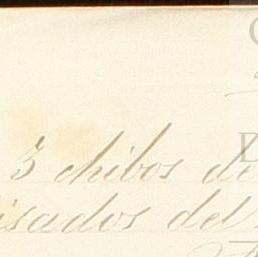 3 chibos de
isados del